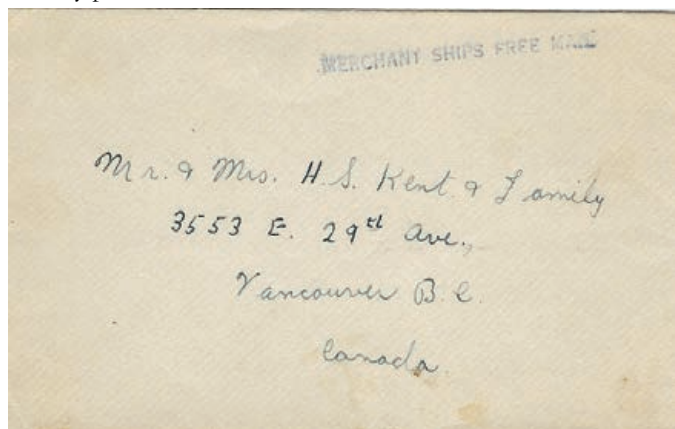 MERCHANT SHIPS FREE MAIL
Mr. & Mrs. H. S. Kent & Family
3553 E. 29th Ave.,
Vancouver B. C.
Canada.